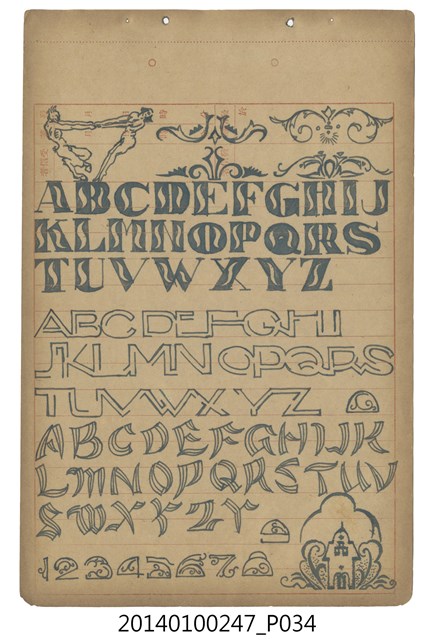 ABCDEFGHIJ
KLMNOPQRS
TUVWXYZ
ABCDEFGHI
JKLMNOPQRS
TUVWXYZ
ABCDEFGHIJK
LMNOPQRSTUV
SWXYZY
12345678
20140100247_P034